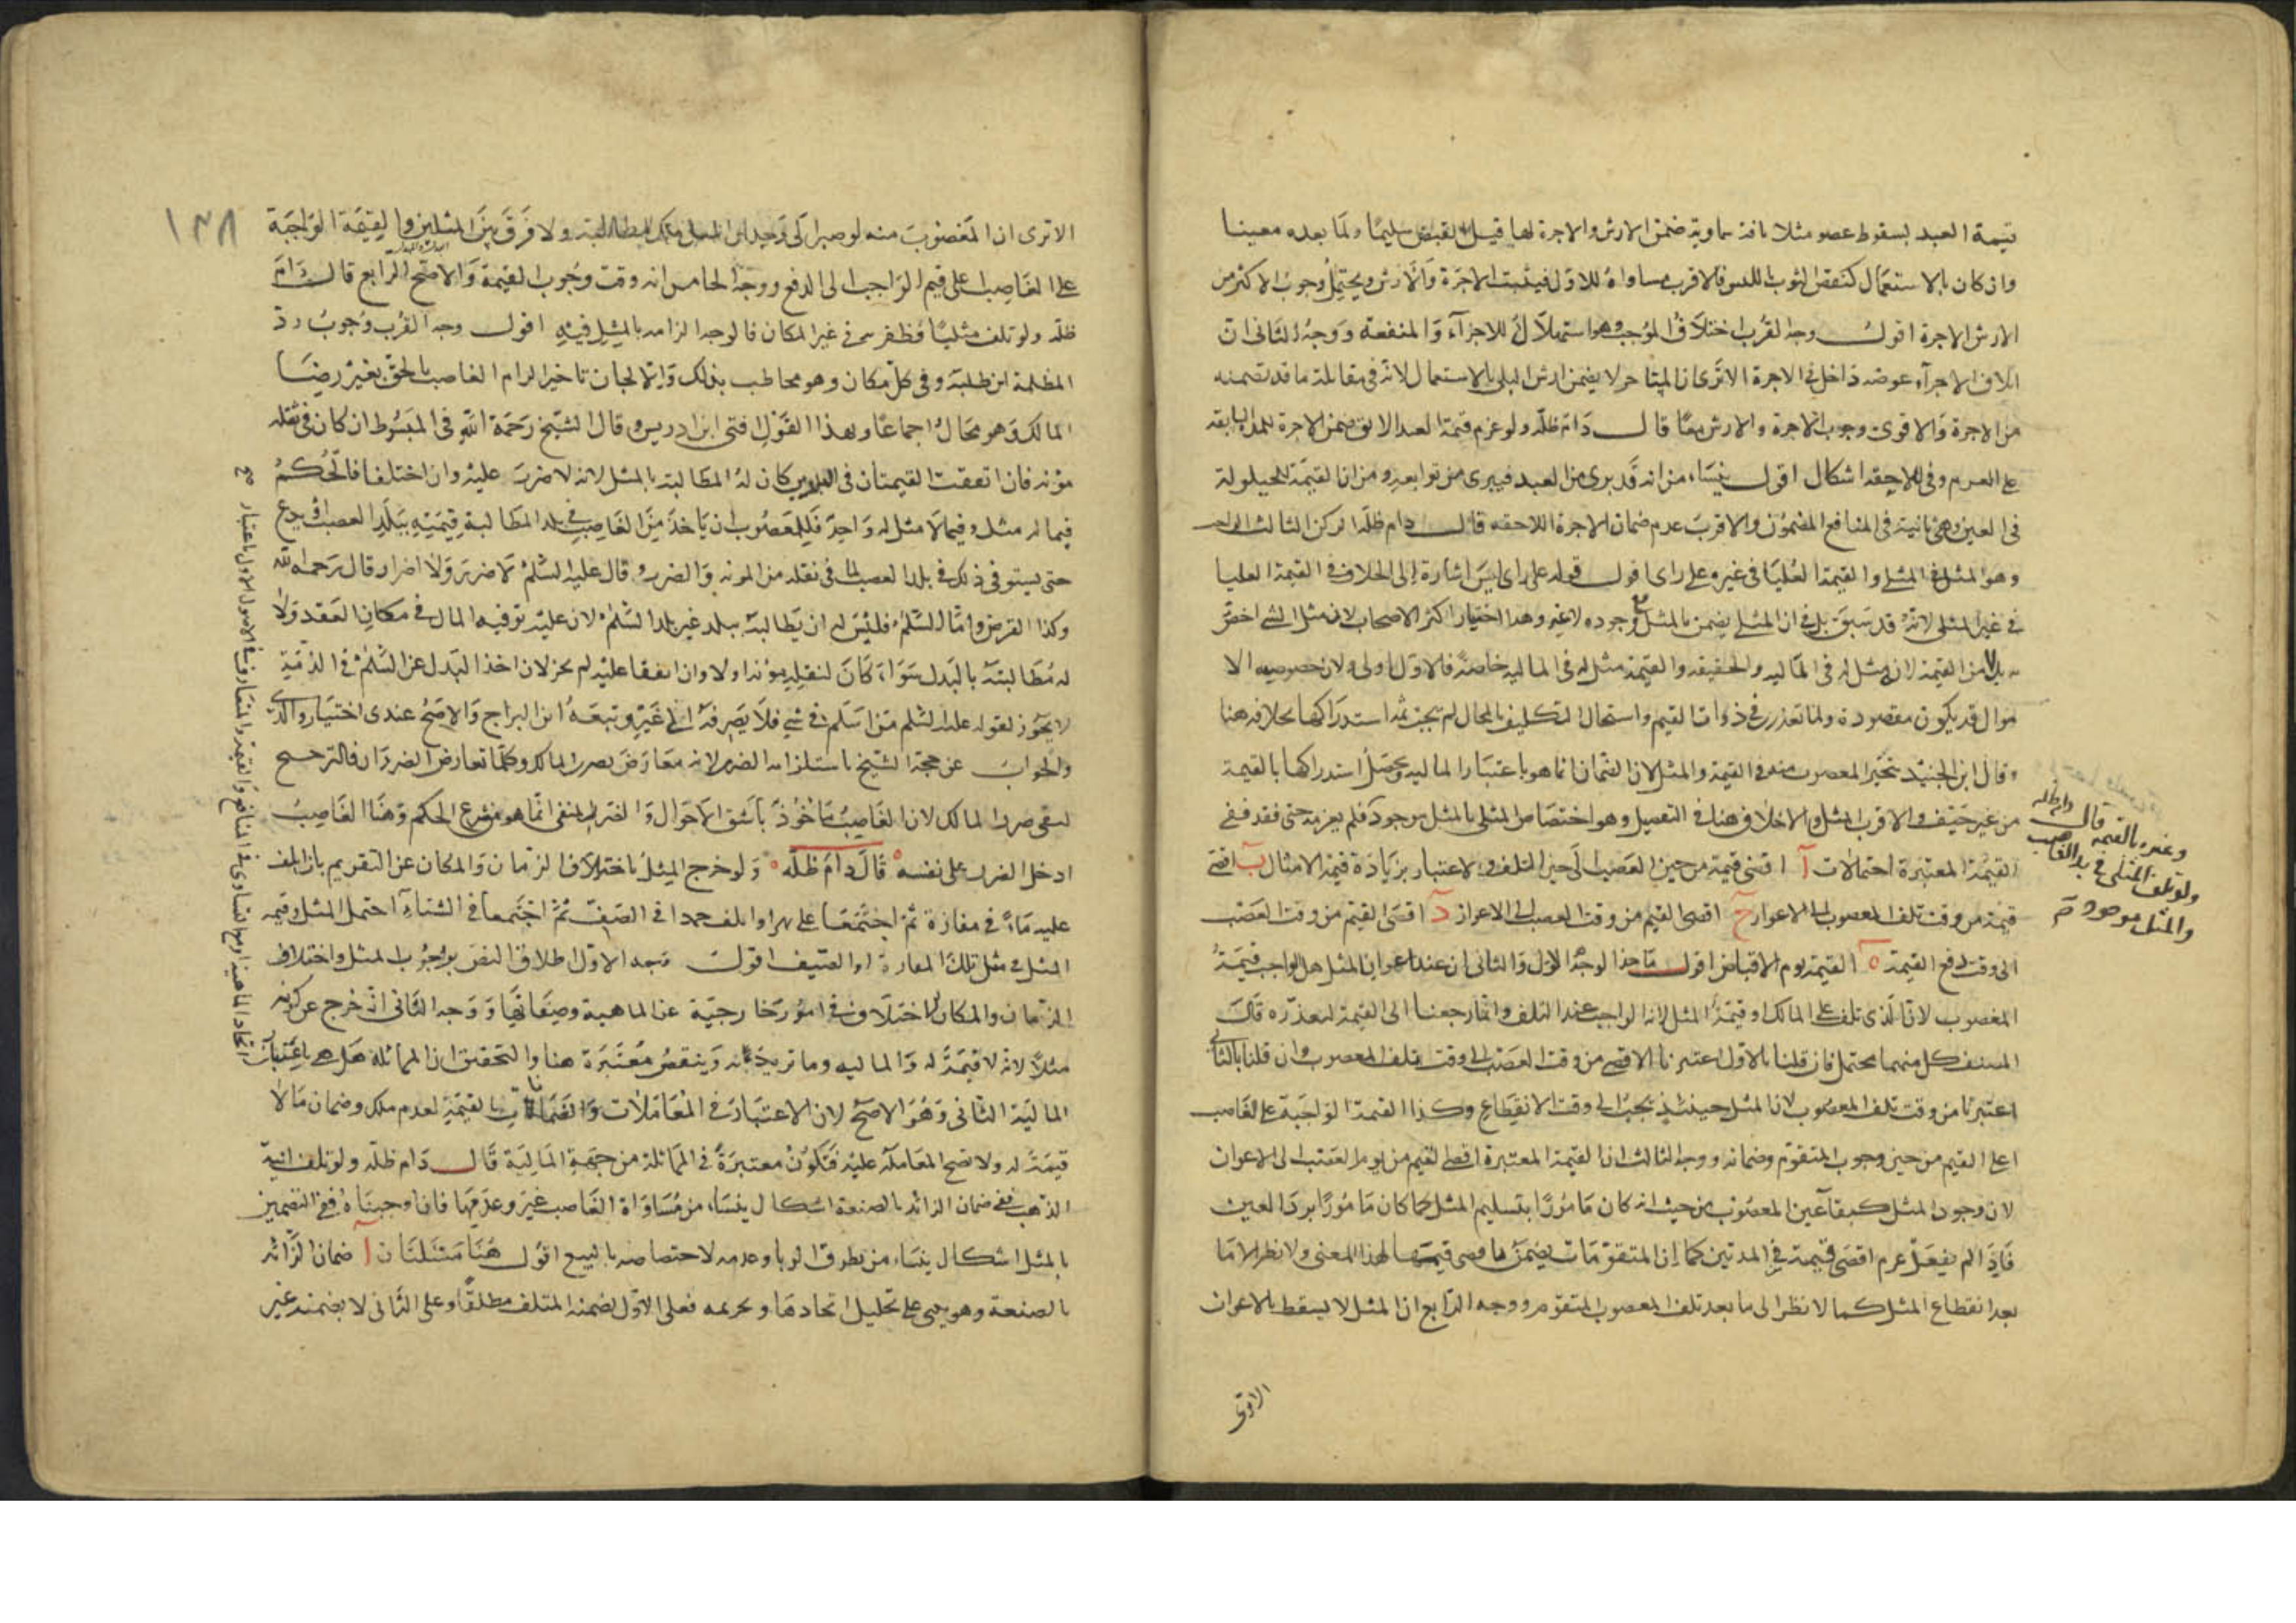 قيمة العبد بسقوط عضو مثلا بافة سماوية ضمن الارش والاجرة لها قبل النقص سليما ولما بعده معيبا
وان كان بالاستعمال كنقص الثوب باللبس فالاقرب مساواة للاول فيثبت الاجرة والارش ويحتمل وجوب الاكثر من
الارش الاجرة اقول وجه القرب اختلاف الموجب وهو استهلاك للاجزاء والمنفعة ووجه الثاني ان
اتلاف الاجزاء عوضه داخل في الاجرة الا ترى ان المستاجر لا يضمن ارش البلى بالاستعمال لانه في مقابلة ما قد تضمنه
من الاجرة والاقوى وجوب الاجرة والارش معا قال دام ظله ولو غرم قيمة العبد الابق ضمن الاجرة للمدة السابقة
على الغرم وفي اللاحقه اشكال اقول ينشا من انه قد برى من العبد فيبرى من توابعه ومن ان القيمة للحيلولة
في العين وهي ثانية في المنافع المضمون والاقرب عدم ضمان الاجرة اللاحقه قال دام ظله الركن الثالث الواجب
وهو المثل في المثلى والقيمة العليا في غيره على راى اقول قوله على راى ليس اشارة الى الخلاف في القيمة العليا
في غير المثلى لانه قد سبق بل في ان المثلى يضمن بالمثل مع وجوده لا غير وهذا اختيار اكثر الاصحاب لان مثل الشي اخص
به بدلا من القيمة لان مثل له في المالية والحقيقه والقيمة مثل له في المالية خاصة فالاول اولى ولان خصوصيه الا
موال قد يكون مقصودة ولما تعذر في ذوات القيم واستحال التكليف بالمحال لم يجب ثمة استدراكها بخلافه هنا
وقال ابن الجنيد يتخير المغصوب منه في القيمة والمثل لان الضمان انما هو باعتبار المالية ويحصل استدراكها بالقيمة
من غير حيف والاقرب المثل والاخلاف هنا في التفصيل وهو اختصاص المثلى بالمثل موجود فلم يغرمه حتى فقد ففي
القيمة المعتبرة احتمالات آ اقصى قيمة من حين الغصب الى حين التلف ولا اعتبار بزيادة قيمة الامثال ب اقصى
قيمة من وقت تلف المغصوب الى الاعواز ج اقصى القيم من وقت الغصب الى الاعواز د اقصى القيم من وقت الغصب
الى وقت دفع القيمة ه القيمة يوم الاقباض اقول ماخذ الوجه الاول والثاني ان عند اعواز المثل هل الواجب قيمة
المغصوب لانه الذى تلف على المالك او قيمة المثل لانه الواجب عند التلف وانما رجعنا الى القيمة لتعذره قال
المصنف كل منهما محتمل فان قلنا بالاول اعتبرنا الاقصى من وقت الغصب الى وقت تلف المغصوب وان قلنا بالثاني
اعتبرنا من وقت تلف المغصوب لان المثل حينئذ يجب الى وقت الانقطاع وكذا القيمة الواجبة على الغاصب
اعلى القيم من حين وجوب المتقوم وضمانه ووجه الثالث ان القيمة المعتبرة اقصى القيم من يوم الغصب الى الاعواز
لان وجود المثل كبقاء عين المغصوب من حيث انه كان مامورا بتسليم المثل كما كان مامورا برد العين
فاذا لم يفعل غرم اقصى قيمة في المدتين كما ان المتقومات يضمن باقصى قيمتها لهذا المعنى ولا نظر الا ما
بعد انقطاع المثل كما لا نظر الى ما بعد تلف المغصوب المتقوم ووجه الرابع ان المثل لا يسقط بالاعواز
الاترى
وغيره بالقيمة قال دام ظله
ولو تلف المثلى في يد الغاصب
والمثل موجود
١٣٨
الا ترى ان المغصوب منه لو صبر الى وجدان المثل ملك المطالبة به ولا فرق بين المثلين والقيمة الواجبة
على الغاصب اعلى قيم الواجب الى الدفع ووجه الخامس انه وقت وجوب القيمة والاصح الرابع قال دام
ظله ولو تلف مثليا فظفر به في غير المكان فالوجه الزامه بالمثل فيه اقول وجه القرب وجوب رد
المظلمة اين طلبه وفي كل مكان وهو مخاطب بذلك والا لجاز تاخير الزام الغاصب بالحق بغير رضا
المالك وهو محال اجماعا وبهذا القول افتى ابن ادريس وقال الشيخ رحمة الله في المبسوط ان كان في نقله
مؤنه فان اتفقت القيمتان في البلدين كان له المطالبة بالمثل لانه لا ضرر عليه وان اختلفا فالحكم
فيما له مثل وفيما لا مثل له واحد فللمغصوب ان ياخذ من الغاصب في بلد المطالبة قيمته ببلد الغصب او يدع
حتى يستوفى ذلك في بلد الغصب لما في نقله من المونه والضرر وقال عليه السلم لا ضرر ولا اضرار قال رحمه الله
وكذا القرض واما السلم فليس له ان يطالبه ببلد غير بلد السلم لان عليه توفيه المال في مكان العقد ولا
له مطالبته بالبدل سواء كان لنقله مؤنه او لا وان اتفقا عليه لم يجز لان اخذ البدل عن السلم في الذمة
لا يجوز لقوله عليه السلم من اسلم في شي فلا يصرفه الى غيره وتبعه ابن البراج والاصح عندى اختيار والدى
والجواب عن حجة الشيخ باستلزامه الضرر لانه معارض بضرر المالك وكلما تعارض الضرران فالترجيح
لنفى ضرر المالك لان الغاصب ماخوذ باشق الاحوال والضرر المنفى انما هو في شرع الحكم وهنا الغاصب
ادخل الضرر على نفسه قال دام ظله ولو خرج المثل باختلاف الزمان والمكان عن التقويم بان اتلف
عليه ماء في مفازة ثم اجتمعا على نهر او اتلف جمدا في الصيف ثم اجتمعا في الشتاء احتمل المثل وقيمة
المثل في مثل تلك المفازة او الصيف اقول وجه الاول اطلاق النص بوجوب المثل واختلاف
الزمان والمكان لاختلاف في امور خارجية عن الماهية وصفاتها ووجه الثاني انه خرج عن كونه
مثلا لانه لا قيمة له والمالية وما تزيد به وينقص معتبرة هنا والتحقيق ان المماثلة هل هي باعتبار
المالية الثاني وهو الاصح لان الاعتبار في المعاملات والضمانات بالقيمة لعدم ملك وضمان ما لا
قيمة له ولا تصح المعامله عليه فتكون معتبرة في المماثلة من جهة المالية قال دام ظله ولو تلف انية
الذهب ففي ضمان الزائد بالصنعة اشكال ينشا من مساواة الغاصب غيره وعدمها فان اوجبناه ففي التضمين
بالمثل اشكال ينشاء من تطرق الربا وعدمه لاختصاصه بالبيع اقول هنا مسئلتان آ ضمان الزائد
بالصنعة وهو يبنى على تحليل اتخادها وتحريمه فعلى الاول يضمنه المتلف مطلقا وعلى الثاني لا يضمنه غير